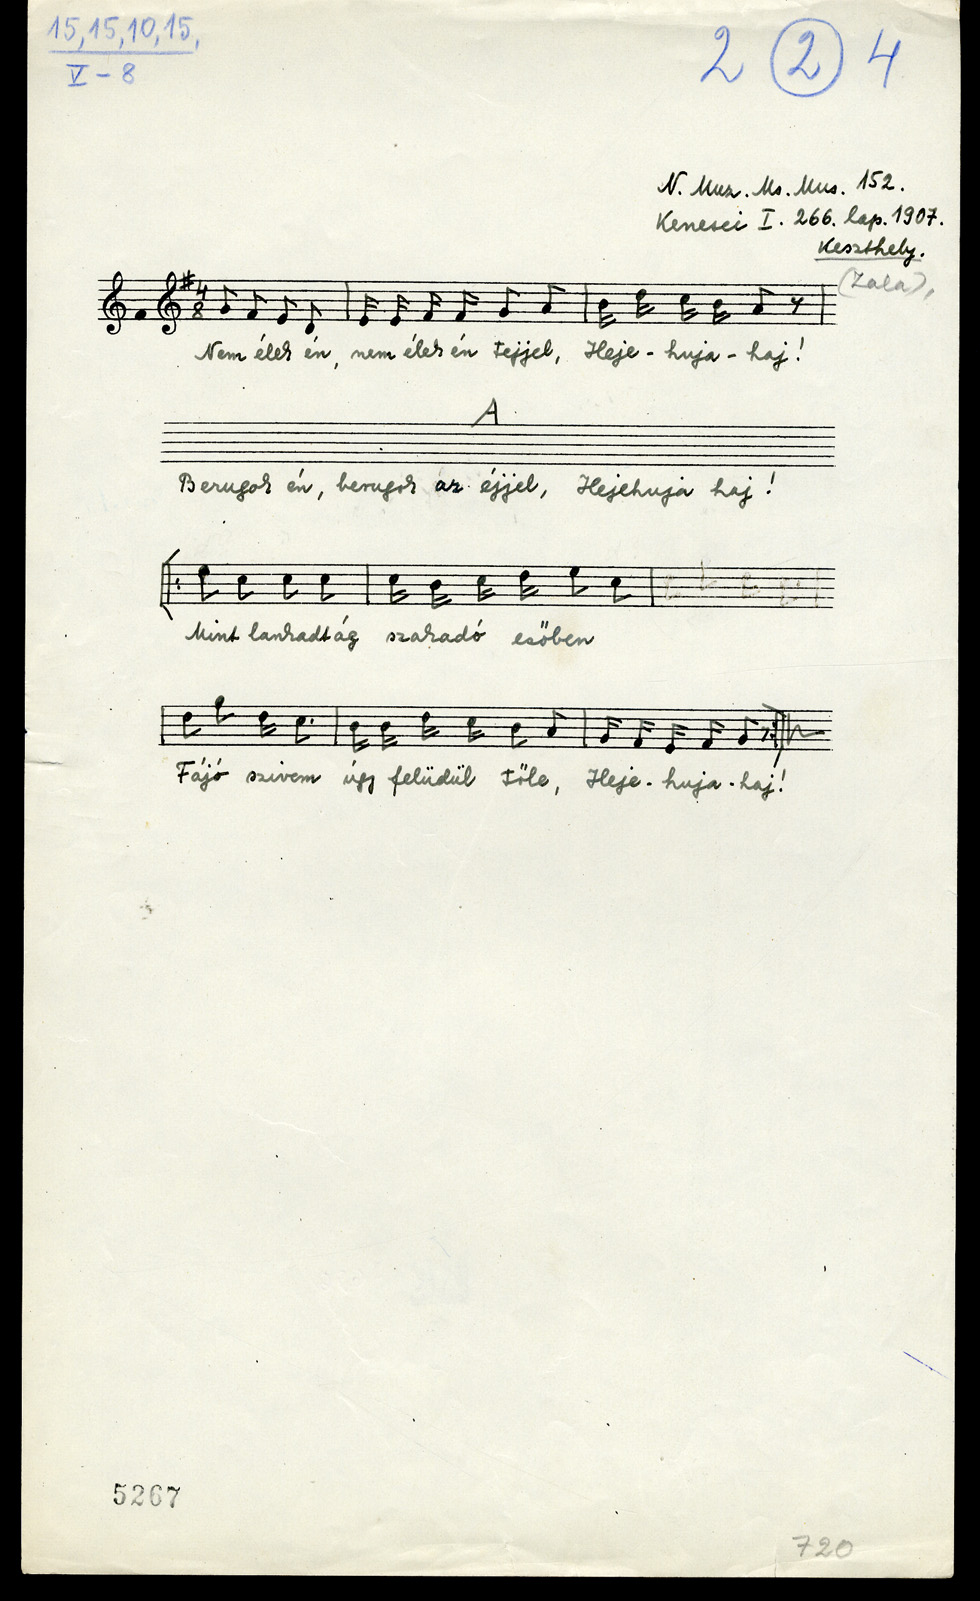 15, 15, 10, 15,
V - 8
2 2 4
N. Muz. Ms. Mus. 152.
Kenesei I. 266. lap. 1907.
Keszthely.
(Zala),
4
8
Nem élek én, nem élek én tejjel, Heje - huja - haj!
A
Berugok én, berugok az éjjel, Hejehuja haj!
Mint lankadt ág szakadó esőben
Fájó szivem úgy felüdül tőle, Heje - huja - haj!
5267
720